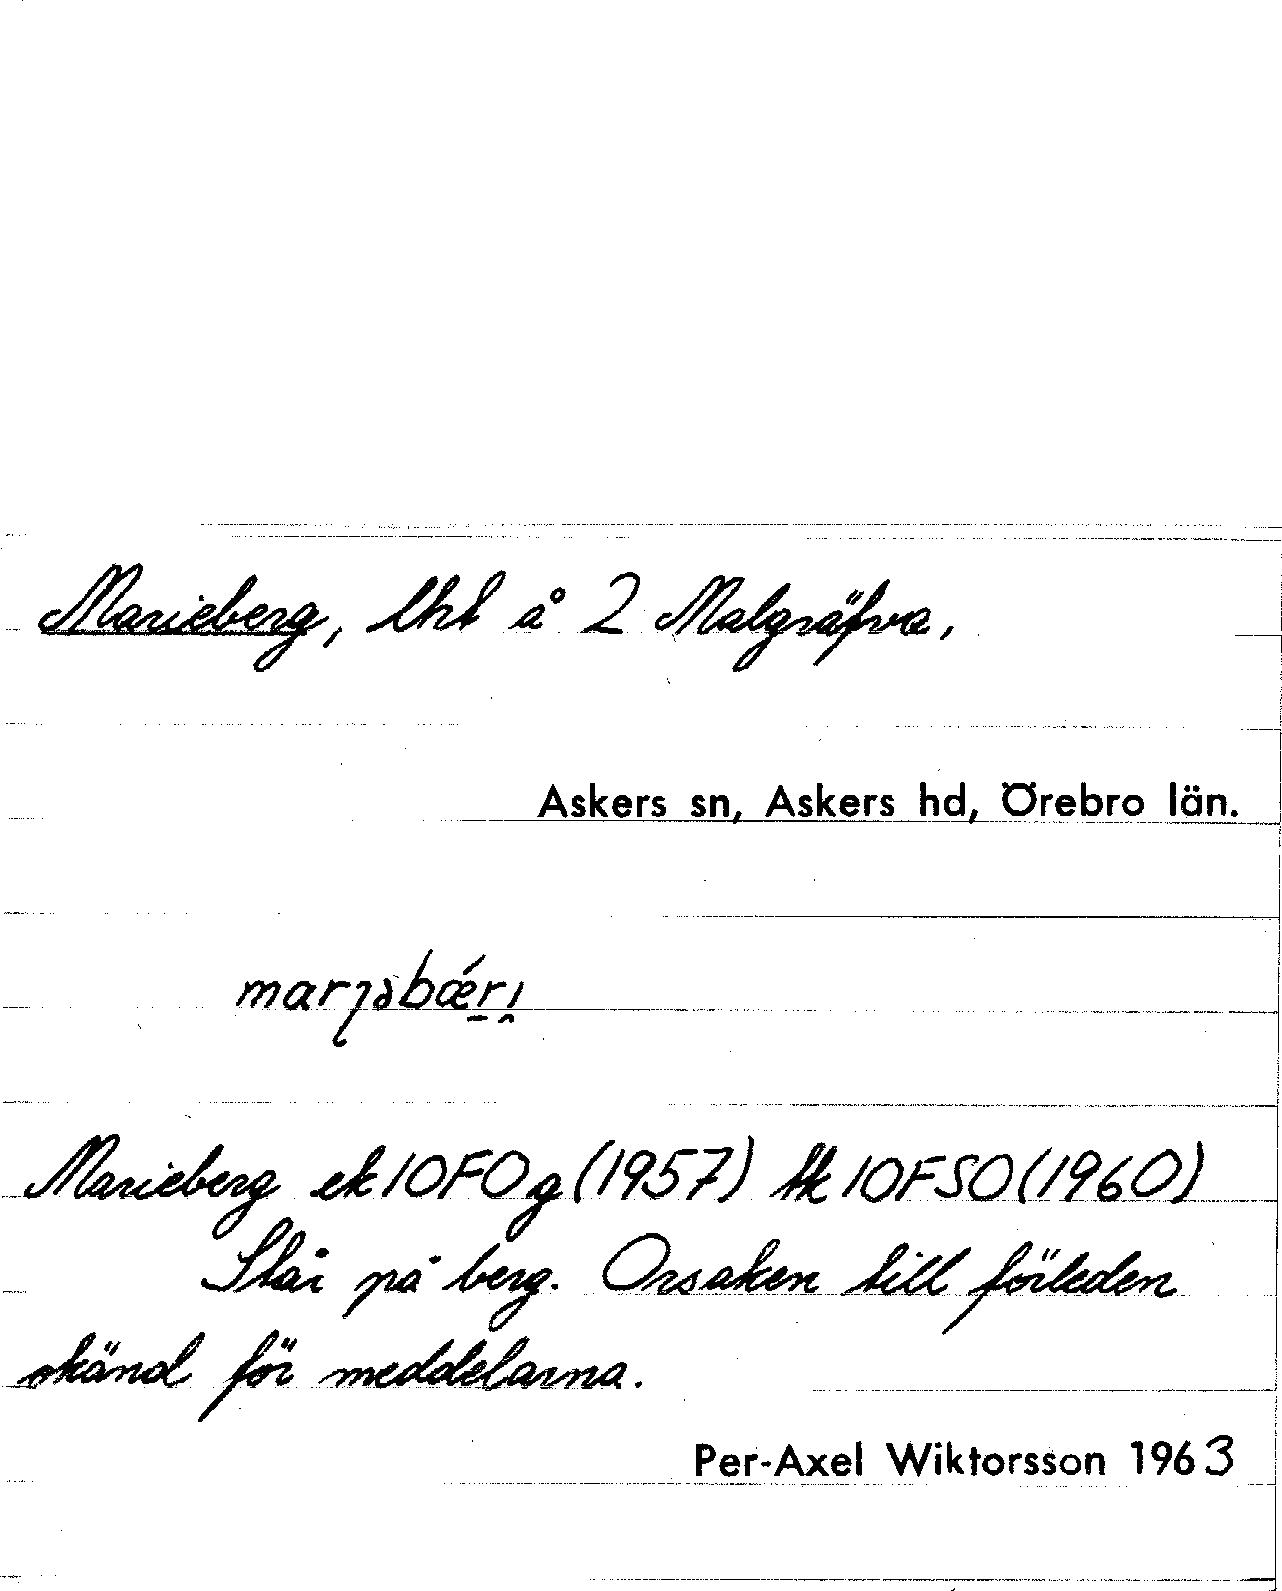 Marieberg, lht å 2 Malgräfva,
Askers sn, Askers hd, Örebro län.
Marieberg ek 10F0g (1957) tk 10FSO (1960)
Står på berg. Orsaken till förleden
okänd för meddelarna.
Per-Axel Wiktorsson 1963